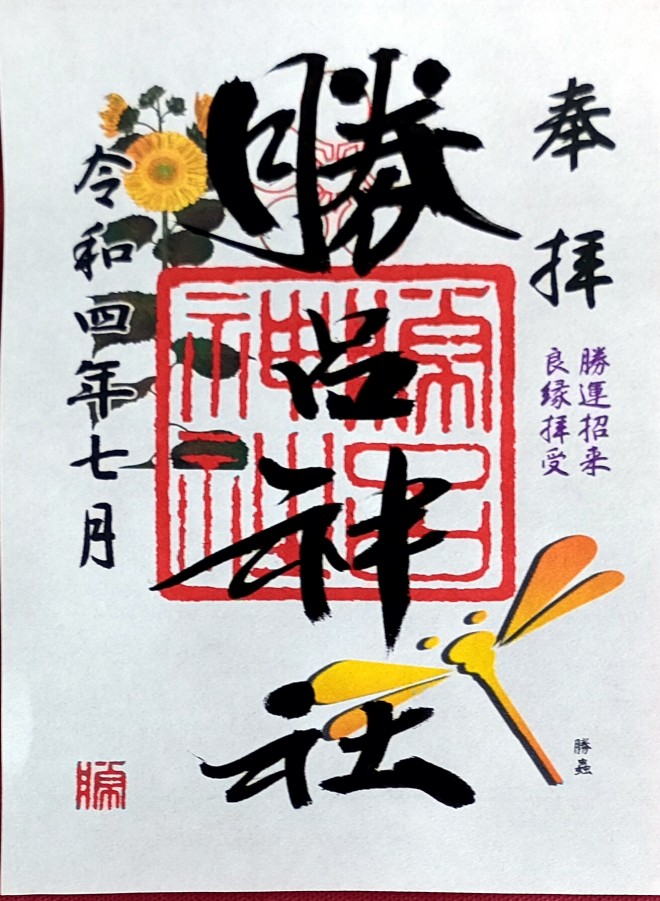 奉拝
勝運招来
良縁拝受
勝呂神社
令和四年七月
勝蟲